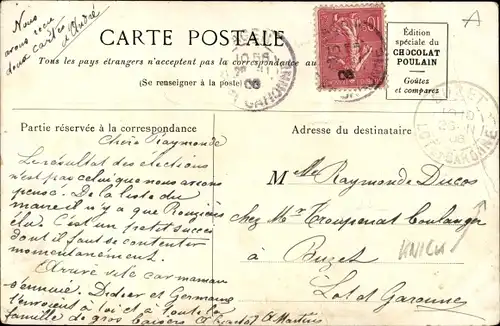 Nous
avons reçu
deux cartes d'André
A
CARTE POSTALE
Tous les pays étrangers n'acceptent pas la correspondance au
(Se renseigner à la poste)
Édition
spéciale du
CHOCOLAT
POULAIN
Goûtez
et comparez
10
08
GARONNE
BUZET
08
LOT-ET-GARONNE
Partie réservée à la correspondance
Adresse du destinataire
Chère Raymonde
Le résultat des élections
n'est pas celui que nous avions
pensé. De la liste du
maire il n'y a que
élu. C'est un petit succès
dont il faut se contenter
momentanément.
Arrive vite car maman
s'ennuie. Didier et Germaine
t'envoient à toi et à toute la
famille de gros baisers A. Martin
Mlle Raymonde Ducos
chez Mr Troupenat Boulanger
à Buzet
Lot et Garonne